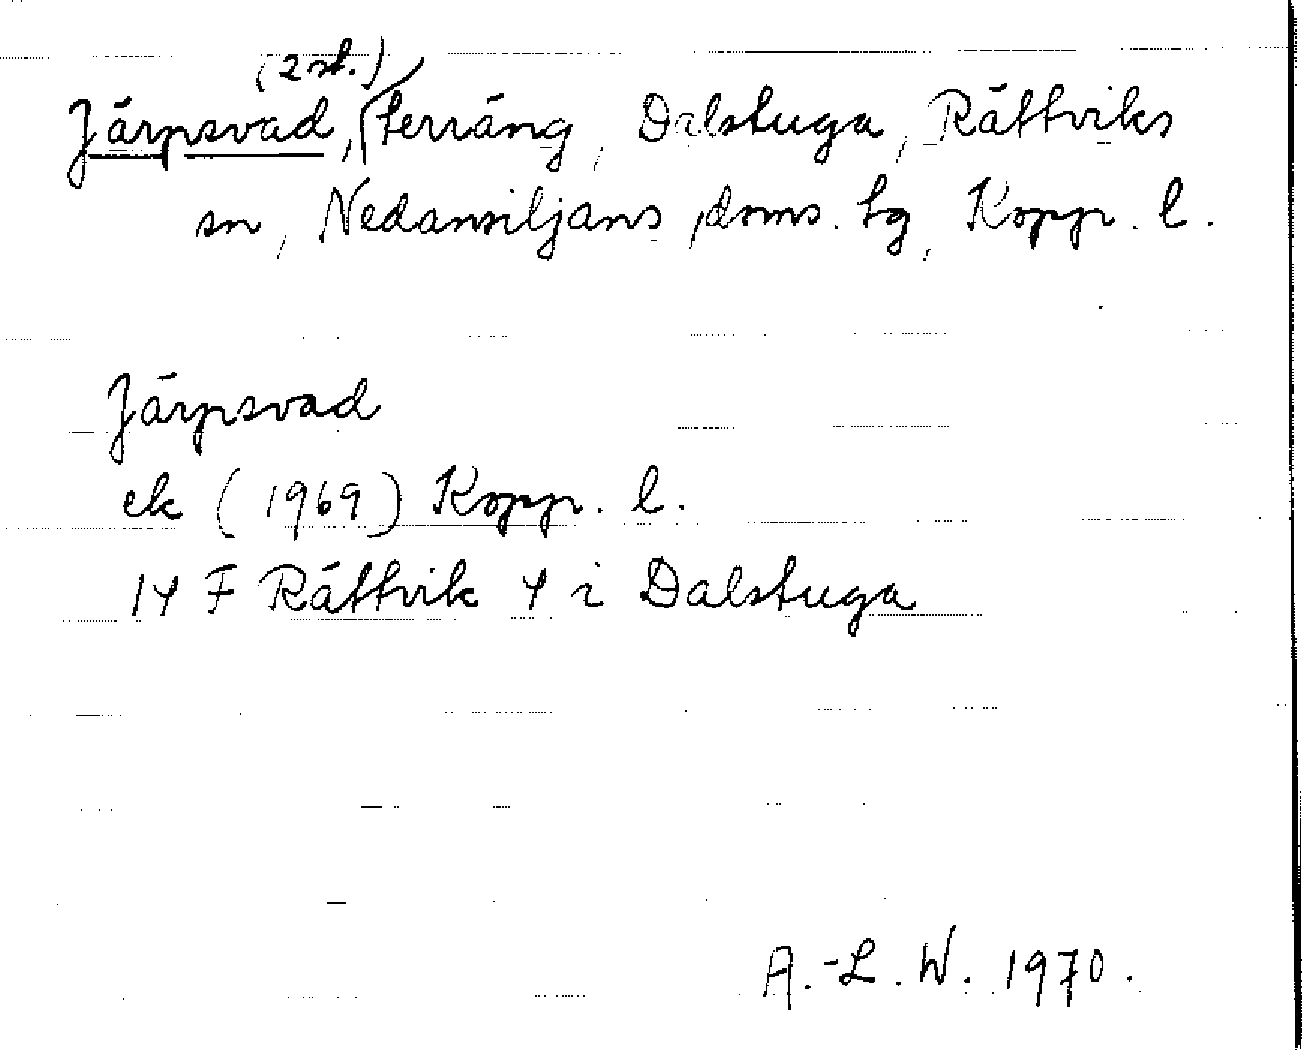 (2 st.)
Järpsvad, terräng, Dalstuga, Rättviks
sn, Nedansiljans doms. hg, Kopp. l.
Järpsvad
ek (1969) Kopp. l.
14 F Rättvik 4 i Dalstuga
A.-L. W. 1970.